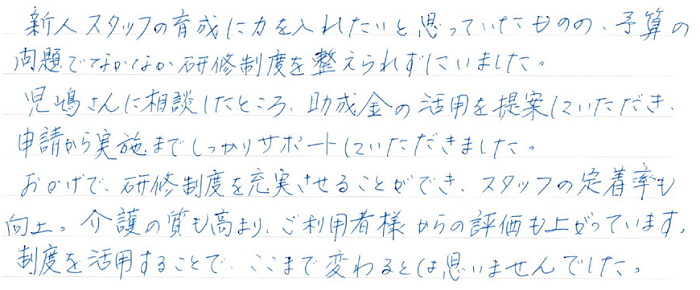 新人スタッフの育成に力を入れたいと思っていたものの、予算の
問題でなかなか研修制度を整えられずにいました。
児嶋さんに相談したところ、助成金の活用を提案していただき、
申請から実施までしっかりサポートしていただきました。
おかげで、研修制度を充実させることができ、スタッフの定着率も
向上。介護の質も高まり、ご利用者様からの評価も上がっています。
制度を活用することで、ここまで変わるとは思いませんでした。